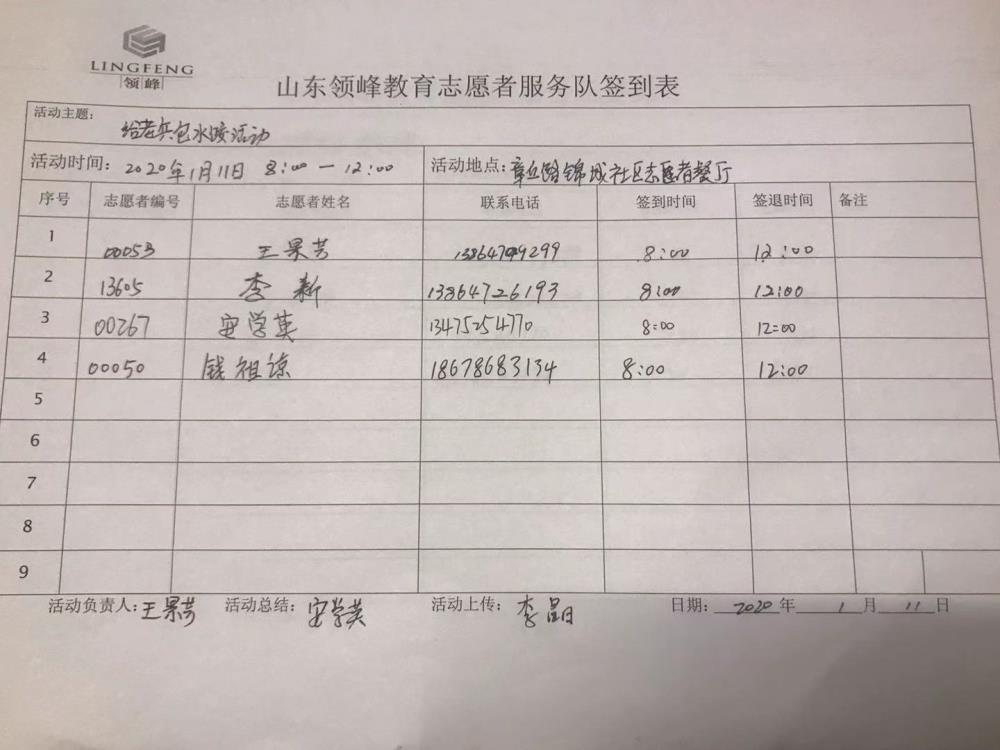 LINGFENG
领峰
山东领峰教育志愿者服务队签到表
活动主题:
给老兵包水饺活动
活动时间: 2020年1月11日 8:00 — 12:00 活动地点: 章丘路锦城社区志愿者餐厅
序号 志愿者编号 志愿者姓名 联系电话 签到时间 签退时间 备注
1 00053 王果芳 8:00 12:00
2 13605 李新 13864726193 8:00 12:00
3 00267 安学英 13475254770 8:00 12:00
4 00050 钱祖谅 18678683134 8:00 12:00
5
6
7
8
9
活动负责人: 王果芳 活动总结: 安学英 活动上传: 李 日期: 2020年 1月 11日